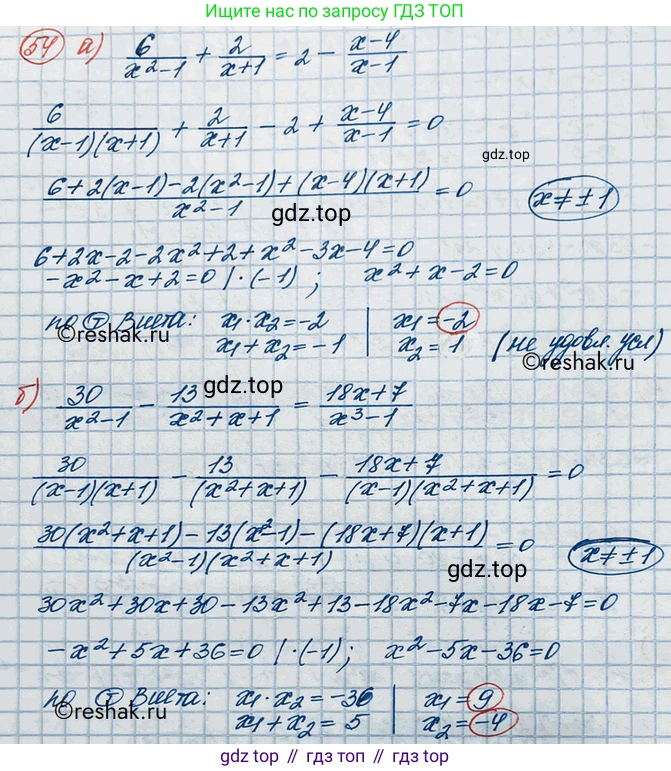 Ищите нас по запросу ГДЗ ТОП
54 а) 6/(x²-1) + 2/(x+1) = 2 - (x-4)/(x-1)
6/((x-1)(x+1)) + 2/(x+1) - 2 + (x-4)/(x-1) = 0
gdz.top
(6+2(x-1)-2(x²-1)+(x-4)(x+1))/(x²-1) = 0 x≠±1
gdz.top
6+2x-2-2x²+2+x²-3x-4=0
-x²-x+2=0 |·(-1); x²+x-2=0
по т Виета: x₁·x₂=-2 | x₁=-2
©reshak.ru
x₁+x₂=-1 | x₂=1 (не удовл. усл)
©reshak.ru
gdz.top
б) 30/(x²-1) - 13/(x²+x+1) = (18x+7)/(x³-1)
30/((x-1)(x+1)) - 13/(x²+x+1) - (18x+7)/((x-1)(x²+x+1)) = 0
(30(x²+x+1)-13(x²-1)-(18x+7)(x+1))/((x²-1)(x²+x+1)) = 0 x≠±1
gdz.top
30x²+30x+30-13x²+13-18x²-7x-18x-7=0
-x²+5x+36=0 |·(-1); x²-5x-36=0
по т Виета: x₁·x₂=-36 | x₁=9
©reshak.ru
x₁+x₂=5 | x₂=-4
©reshak.ru
gdz.top // гдз.топ // гдз.top